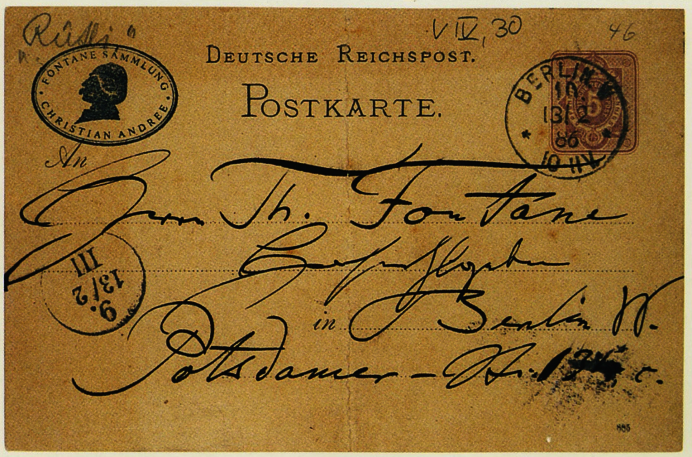 „Rütli"
V IV, 30
46
DEUTSCHE REICHSPOST.
POSTKARTE.
FONTANE SAMMLUNG
CHRISTIAN ANDREE
BERLIN W
10
13/2
86
10-11V.
5
An
Herrn Th. Fontane
9.
13/2
III
in Berlin W.
Potsdamer-Str. 134 c.
886